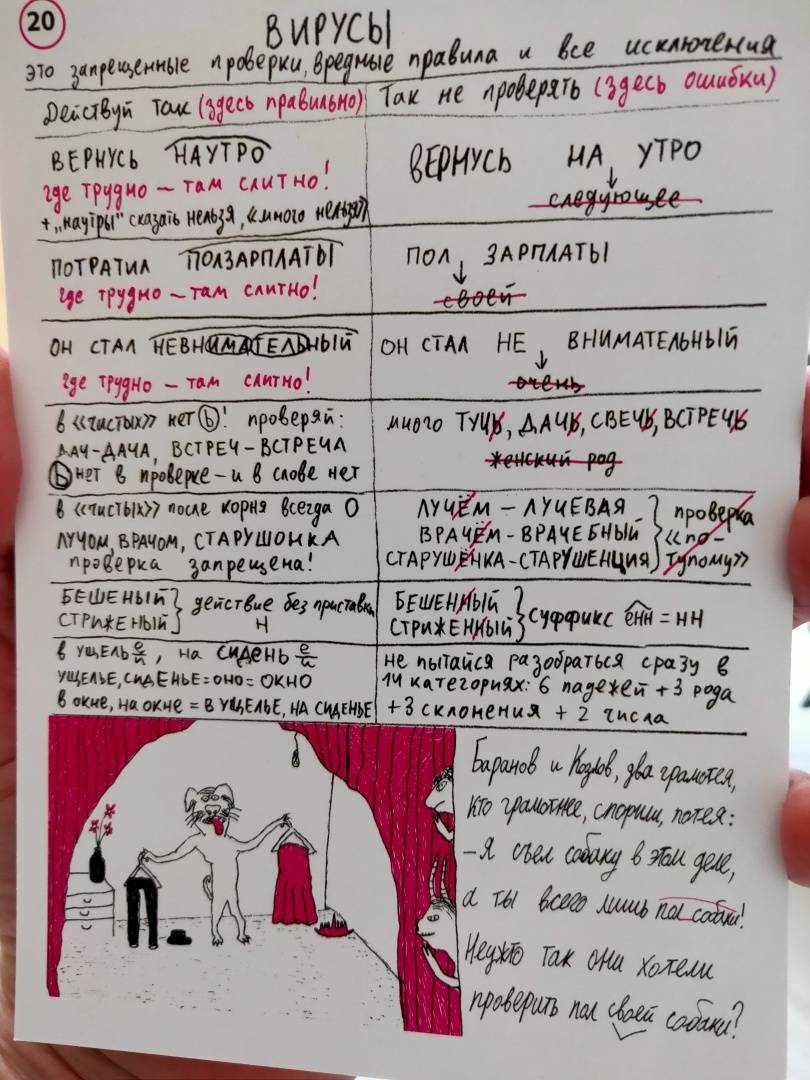 20
ВИРУСЫ
это запрещенные проверки, вредные правила и все исключения
Действуй так (здесь правильно)
Так не проверять (здесь ошибки)
ВЕРНУСЬ НАУТРО
где трудно – там слитно!
+ „наутры" сказать нельзя, «много нельзя»
ВЕРНУСЬ НА УТРО
следующее
ПОТРАТИЛ ПОЛЗАРПЛАТЫ
где трудно – там слитно!
ПОЛ ЗАРПЛАТЫ
своей
ОН СТАЛ НЕВНИМАТЕЛЬНЫЙ
где трудно – там слитно!
ОН СТАЛ НЕ ВНИМАТЕЛЬНЫЙ
очень
в «чистых» нет Ь! проверяй:
ДАЧ-ДАЧА, ВСТРЕЧ-ВСТРЕЧА
Ь нет в проверке – и в слове нет
много ТУЧЬ, ДАЧЬ, СВЕЧЬ, ВСТРЕЧЬ
женский род
в «чистых» после корня всегда О
ЛУЧОМ, ВРАЧОМ, СТАРУШОНКА
проверка запрещена!
ЛУЧЁМ – ЛУЧЕВАЯ
ВРАЧЁМ – ВРАЧЕБНЫЙ
СТАРУШЁНКА-СТАРУШЕНЦИЯ
проверка
«по-
тупому»
БЕШЕНЫЙ
СТРИЖЕНЫЙ
действие без приставки
Н
БЕШЕННЫЙ
СТРИЖЕННЫЙ
суффикс енн = НН
в УЩЕЛЬ е/и, на СИДЕНЬ е/и
УЩЕЛЬЕ, СИДЕНЬЕ = ОНО = ОКНО
в окне, на окне = в УЩЕЛЬЕ, НА СИДЕНЬЕ
не пытайся разобраться сразу в
14 категориях: 6 падежей + 3 рода
+ 3 склонения + 2 числа
Баранов и Козлов, два грамотея,
Кто грамотнее, спорили, потея:
– Я съел собаку в этом деле,
а ты всего лишь пол собаки!
Неужто так они хотели
проверить пол своей собаки?